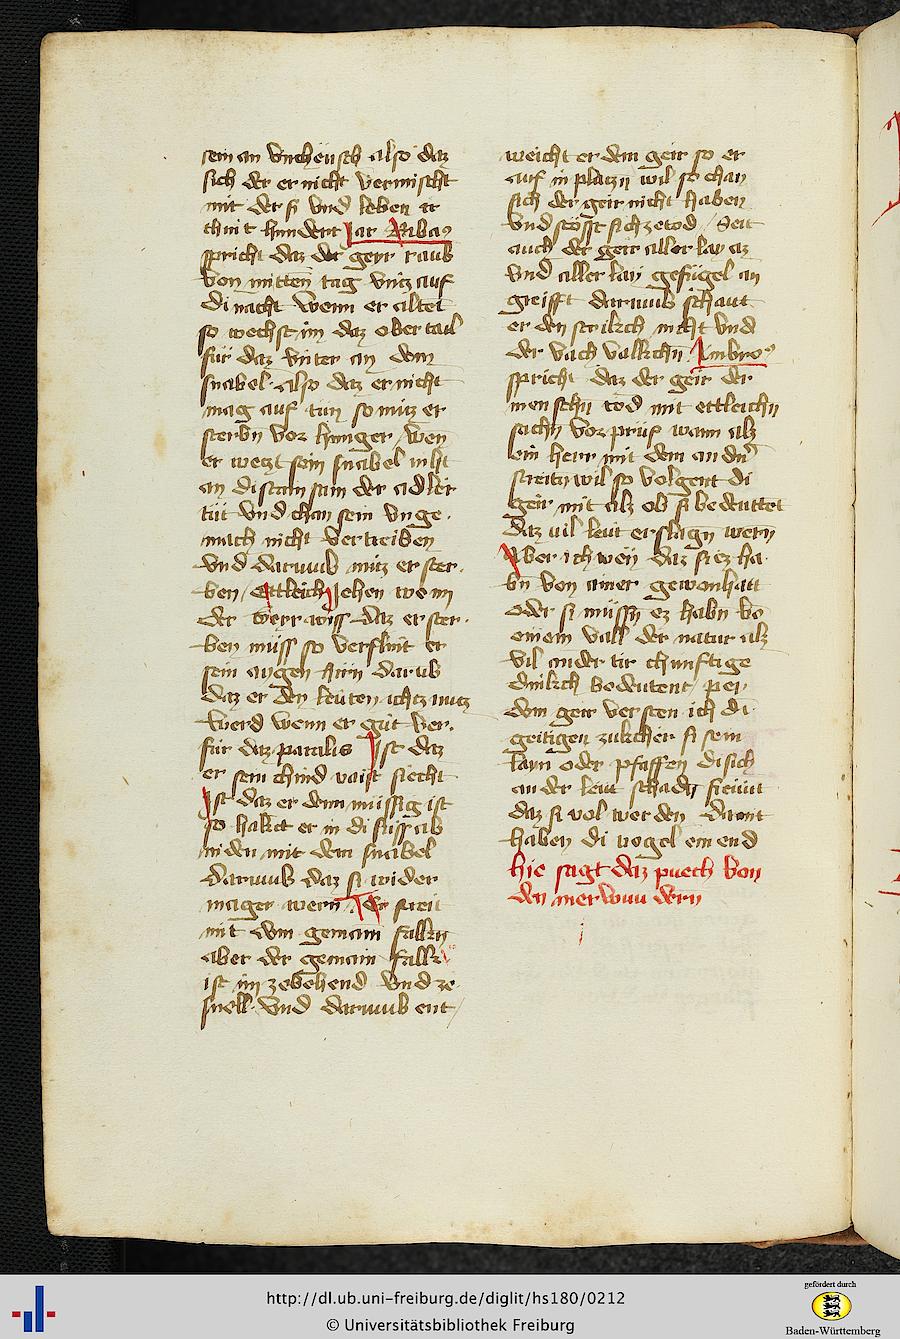 sein an vncheüsch also daz
sich der er nicht vermischt
mit der si vnd leben er
thint hundert Jar Ribaz
spricht daz der geyr raub
von mitten tag vntz auf
di nacht wenn er altet
so wechst im daz ober tail
für daz vnter an dem
snabel also daz er nicht
mag auf tün so müz er
sterbn vor hunger / wen
er wetzt sein snabel niht
an di stain sam der adler
tüt vnd chan sein vnge
mach nicht vertreiben
vnd darumb müz er ster
ben / Ettleich Jehen wenn
der geyr wiss daz er ster
ben müss so verslint er
sein augen stern darub
daz er den leüten ichtz nutz
werd wenn er güt ver
für daz paralis Ist daz
er sein chind vaist siecht
Ist daz er denn müssig ist
so hakct er in di füss ab
niden mit dem snabel
darumb daz si wider
mager wern Er streit
mit dem gemain falkn
aber der gemain falk
ist im ze behend vnd ze
snell vnd darumb ent
weicht er dem geir so er
auf in platzn wil so chan
sich der geir nicht haben
vnd stösst sich ze tod / Seit
auch der geir aller lay az
vnd aller lay gefügel an
greifft darumb schaut
er den strikch nicht vnd
der vach vallkchn Ambro
spricht daz der geir der
menschn tod mit ettleichn
sachn vor prüf wann alz
ein herr mit dem andn
streitn wil so volgent di
geir mit alz ob si bedeuttet
daz uil leut erslagn wern
Aber ich wen daz si ez ha
bn von ainer gewonhait
oder si müssn ez habn vo
einem vall der natur alz
vil ander tir chünftige
dinkch bedeutent / pei
dem geir versten ich di
geitigen zukcher si sein
layn oder pfaffen di sich
an der leut schadn freunt
daz si vol werden Damit
haben di vogel ein end
hie sagt daz puech von
den merwun dern
http://dl.ub.uni-freiburg.de/diglit/hs180/0212
© Universitätsbibliothek Freiburg
gefördert durch
Baden-Württemberg